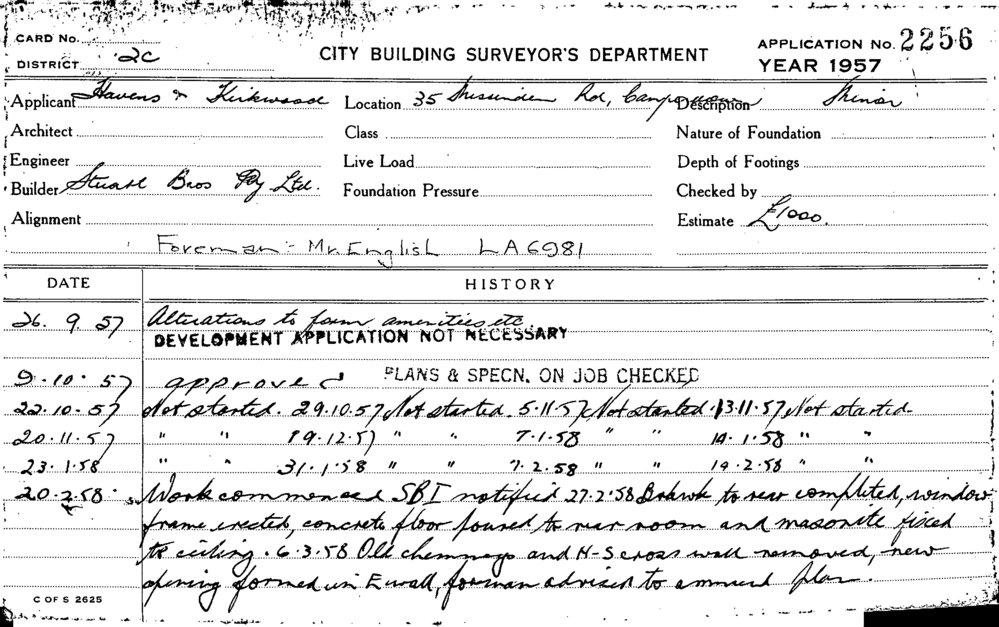 CARD No.
DISTRICT 2C
CITY BUILDING SURVEYOR'S DEPARTMENT
APPLICATION No. 2256
YEAR 1957
Applicant Havens & Kirkwood Location 35 Missenden Rd, Camperdown Description Minor
Architect Class Nature of Foundation
Engineer Live Load Depth of Footings
Builder Stuart Bros Pty Ltd. Foundation Pressure Checked by
Alignment Estimate £1000.
Foreman - Mr. English LA6981
DATE HISTORY
26. 9. 57 Alterations to form amenities etc
DEVELOPMENT APPLICATION NOT NECESSARY
9.10.57 approved PLANS & SPECN. ON JOB CHECKED
22.10.57 Not started. 29.10.57 Not started. 5.11.57 Not started. 13.11.57 Not started.
20.11.57 " " 19.12.57 " " 7.1.58 " " 14.1.58 " "
23.1.58 " " 31.1.58 " " 7.2.58 " " 14.2.58 " "
20.2.58. Work commenced SBI notified 27.2.58 to rear completed, window
frame erected, concrete floor poured to rear room and masonite fixed
to ceiling. 6.3.58 Old and N-S cross wall removed, new
opening formed in E wall, forman advised to ammend plan.
C OF S 2625